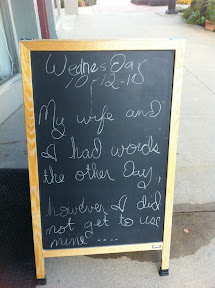 Wednesday
10-12-11
My wife and
I had words
the other Day,
however I did
not get to use
mine ....